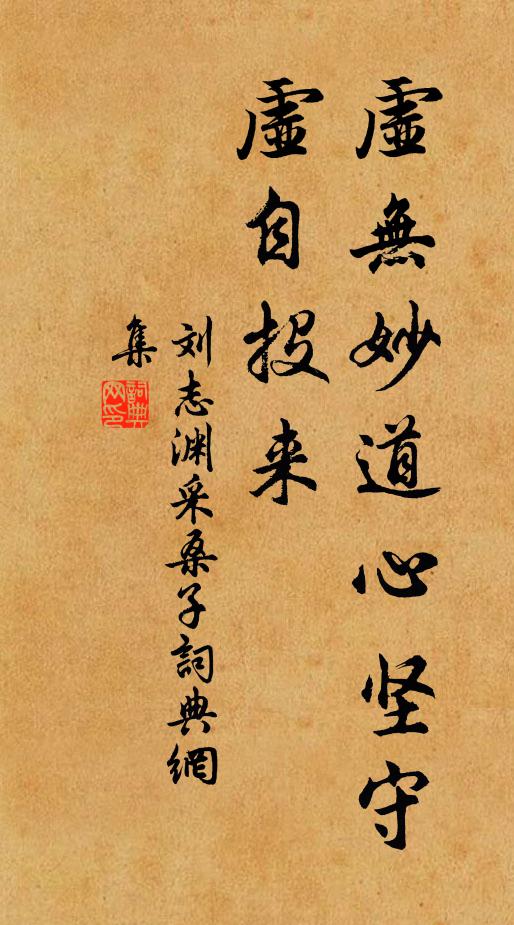 虛無妙道心坚守
虛自投来
刘志渊采桑子詞典網
集
詞典
网印